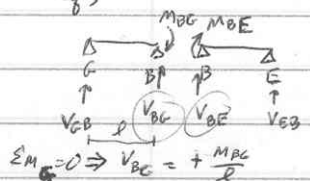 M_BG M_BE
G B B E
V_GB V_BG V_BE V_EB
l
ΣM_G=0 ⇒ V_BG = + M_BG/l